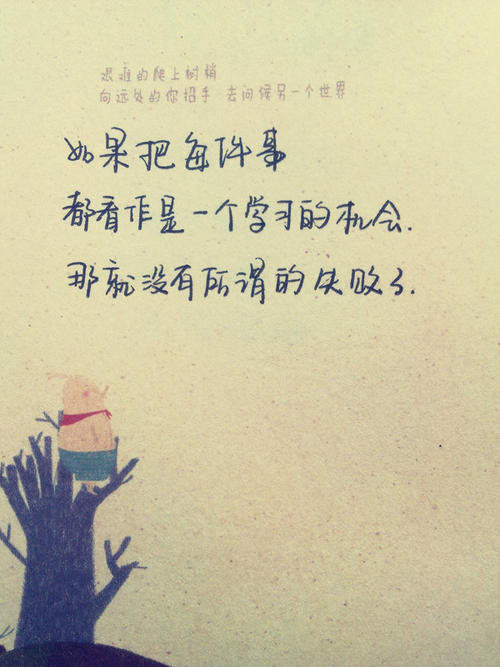 艰难的爬上树梢
向远处的你招手 去问候另一个世界
如果把每件事
都看作是一个学习的机会.
那就没有所谓的失败了.